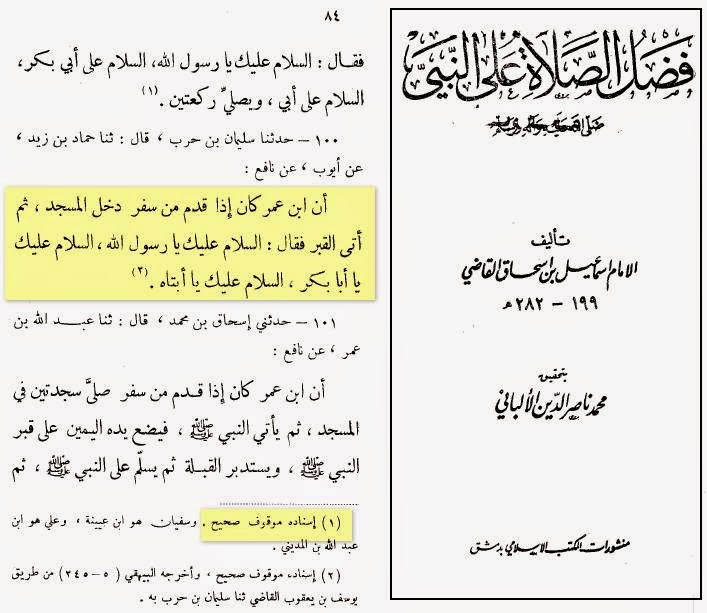 ٨٤
فقال : السلام عليك يا رسول الله، السلام على أبي بكر،
السلام على أبي ، ويصليِّ ركعتين . (١)
١٠٠ – حدثنا سليمان بن حرب ، قال : ثنا حماد بن زيد ،
عن أيوب ، عن نافع :
أن ابن عمر كان إذا قدم من سفر دخل المسجد ، ثم
أتى القبر فقال : السلام عليك يا رسول الله ، السلام عليك
يا أبا بكر ، السلام عليك يا أبتاه . (٢)
١٠١ – حدثني إسحاق بن محمد ، قال : ثنا عبد الله بن
عمر ، عن نافع :
أن ابن عمر كان إذا قدم من سفر صلىَّ سجدتين في
المسجد ، ثم يأتي النبي ﷺ ، فيضع يده اليمين على قبر
النبي ﷺ ، ويستدبر القبلة ثم يسلّم على النبي ﷺ ، ثم
(١) إسناده موقوف صحيح . وسفيان هو ابن عيينة ، وعلي هو ابن
عبد الله بن المديني .
(٢) إسناده موقوف صحيح ، وأخرجه البيهقي (٥–٢٤٥) من طريق
يوسف بن يعقوب القاضي ثنا سليمان بن حرب به .
فضل الصلاة على النبي
تأليف
الامام اسماعيل بن اسحاق القاضي
١٩٩ – ٢٨٢ ه
بتحقيق
محمد ناصر الدين الألباني
منشورات المكتب الاسلامي بدمشق